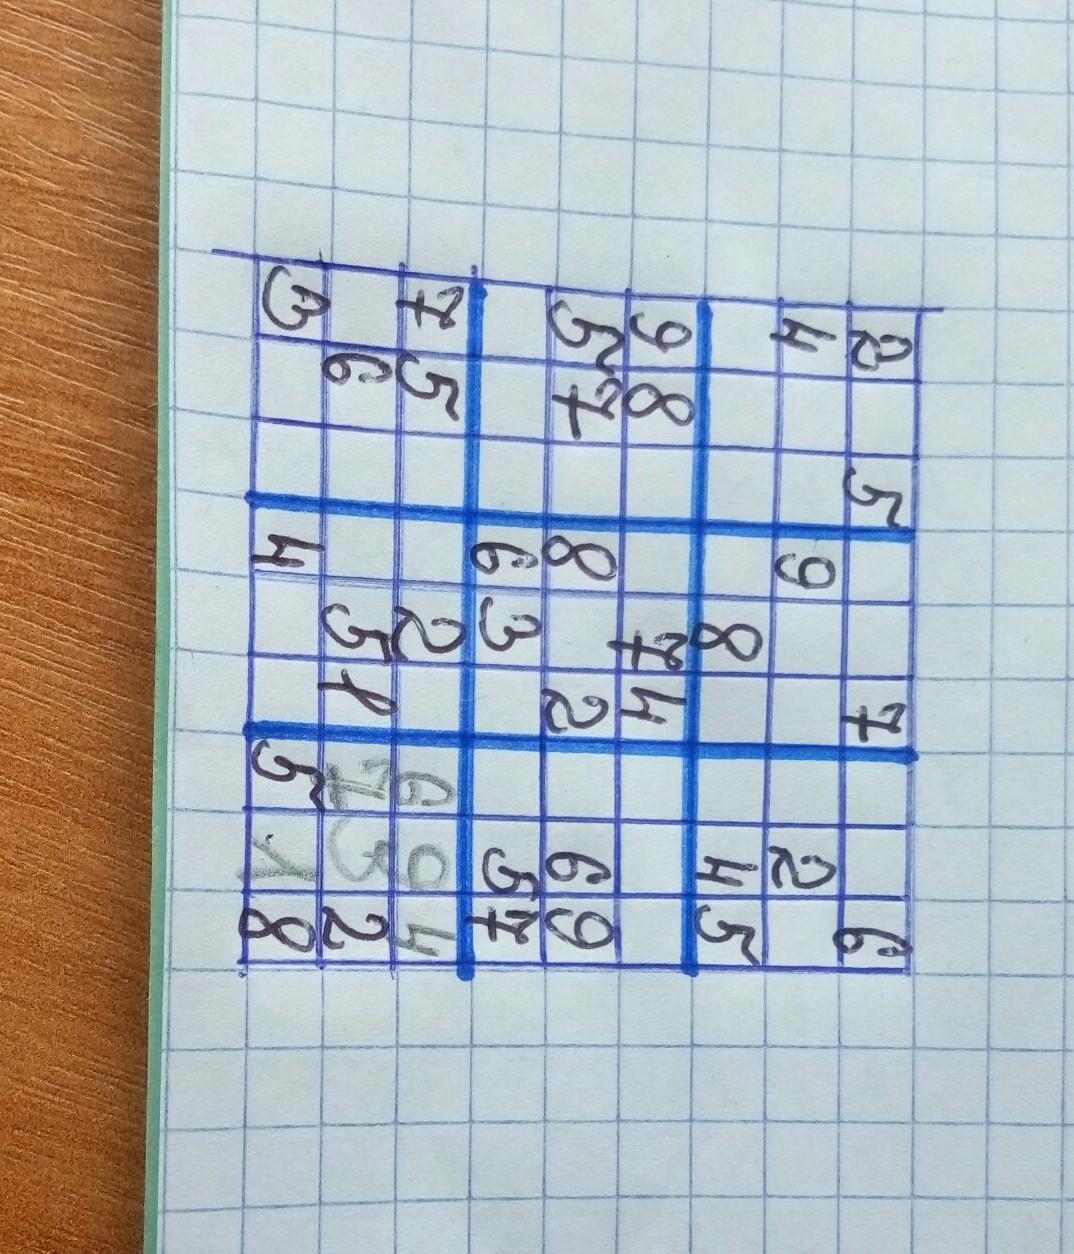 2 5 7 6
4 9 2
8 4 5
9 8 7 4
5 7 8 2 6 9
6 3 5 7
7 5 2 6 9 4
6 5 1 7 3 2
3 4 5 1 8